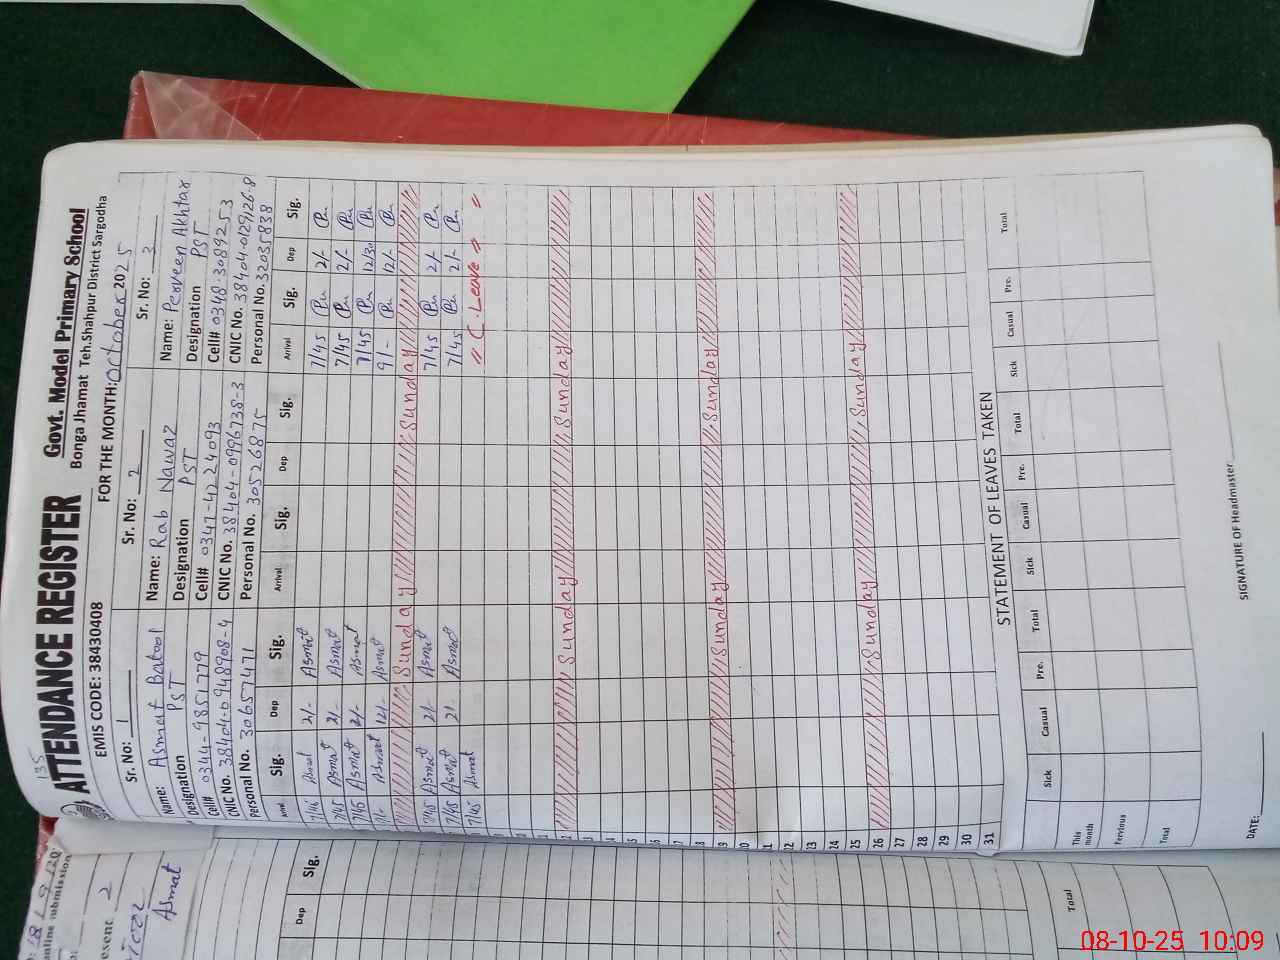 135
ATTENDANCE REGISTER Govt. Model Primary School
Bonga Jhamat Teh.Shahpur District Sargodha
EMIS CODE: 38430408 FOR THE MONTH: October 2025
Sr. No: 1 Sr. No: 2 Sr. No: 3
Name: Asmat Batool Name: Rab Nawaz Name: Perveen Akhtar
Designation PST Designation PST Designation PST
Cell# 0344-9851779 Cell# 0347-4224093 Cell# 0348-3089253
CNIC No. 38404-0948908-4 CNIC No. 38404-0996738-3 CNIC No. 38404-0129126-8
Personal No. 30657471 Personal No. 30526875 Personal No. 32035838
Sig. Dep Sig. Arrival Sig. Dep Sig. Arrival Sig. Dep Sig.
7/45 Asmat 2/- Asmat 7/45 Pu 2/- Pu
7/45 Asmat 2/- Asmat 7/45 Pu 2/- Pu
7/45 Asmat 2/- Asmat 7/45 Pu 12/30 Pu
9/- Asmat 12/- Asmat 9/- Pu 12/- Pu
Sunday Sunday Sunday
7/45 Asmat 2/- Asmat 7/45 Pu 2/- Pu
7/45 Asmat 2/- Asmat 7/45 Pu 2/- Pu
7/45 Asmat " C. Leave " "
Sunday Sunday
Sunday Sunday
24
25
26 Sunday Sunday
27
28
29
30
31
STATEMENT OF LEAVES TAKEN
Sick Casual Pre. Total Sick Casual Pre. Total Sick Casual Pre. Total
This month
Previous
Total
DATE: SIGNATURE OF Headmaster:
18/9/20
online submission
esent 2
Asmat
Dep Sig.
Total
08-10-25 10:09